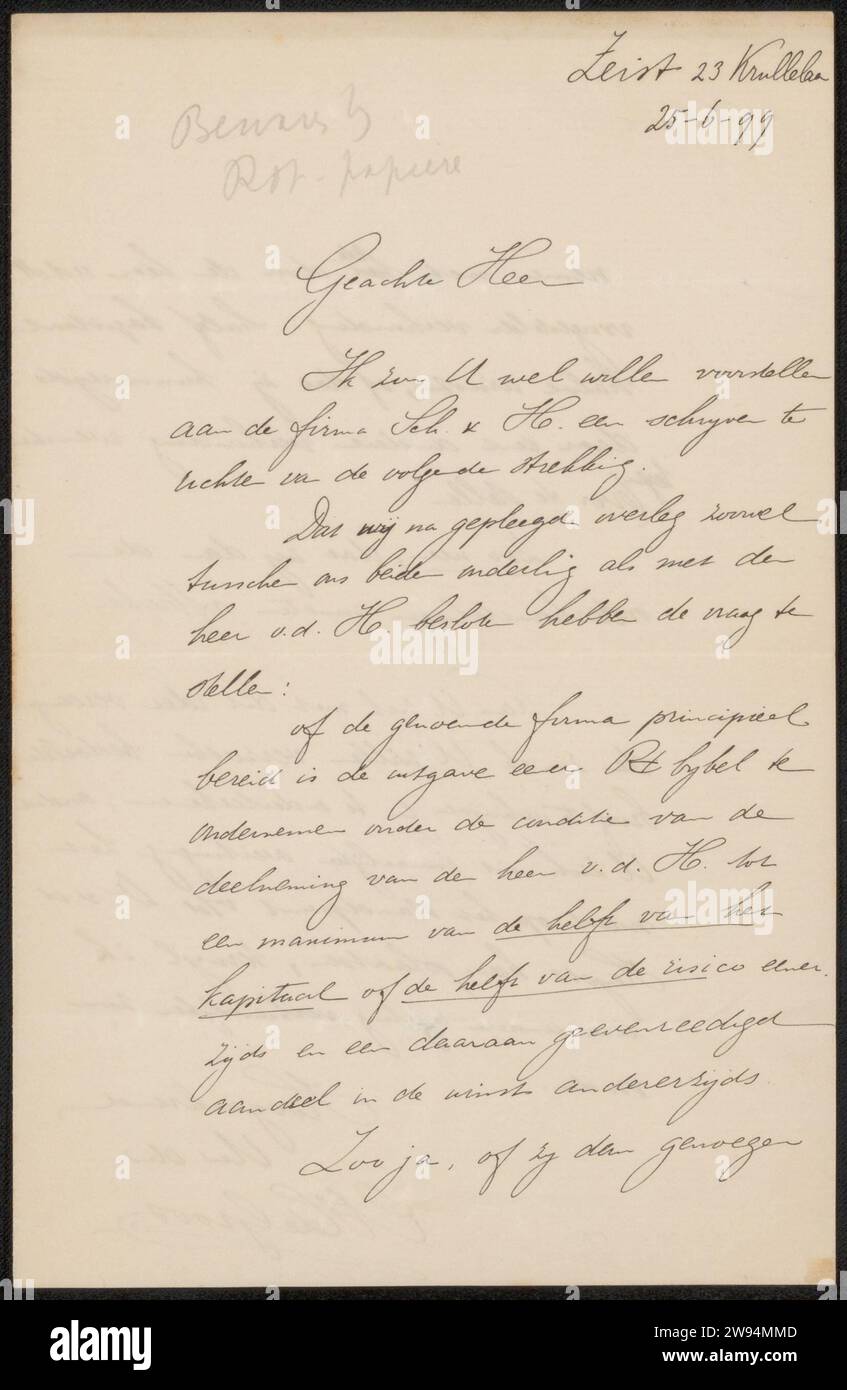 Zeist 23 Krullelaan
25-6-99
Rot. papiere
Geachte Heer
Ik zou U wel willen voorstellen
aan de firma Sch. & H. een schryven te
richten van de volgende strekking.
Dat wij na gepleegd overleg zoowel
tusschen ons beiden onderling als met den
heer v.d. H. besloten hebben de vraag te
stellen:
of de genoemde firma principieel
bereid is de uitgave eener bybel te
ondernemen onder de conditie van de
deelneming van den heer v.d. H. tot
een maximum van de helft van het
kapitaal of de helft van de risico eener
zijds en een daaraan geevenredigd
aandeel in de winst andererzijds.
Zoo ja, of zy dan genegen
alamy
Image ID: 2W94MMD
www.alamy.com